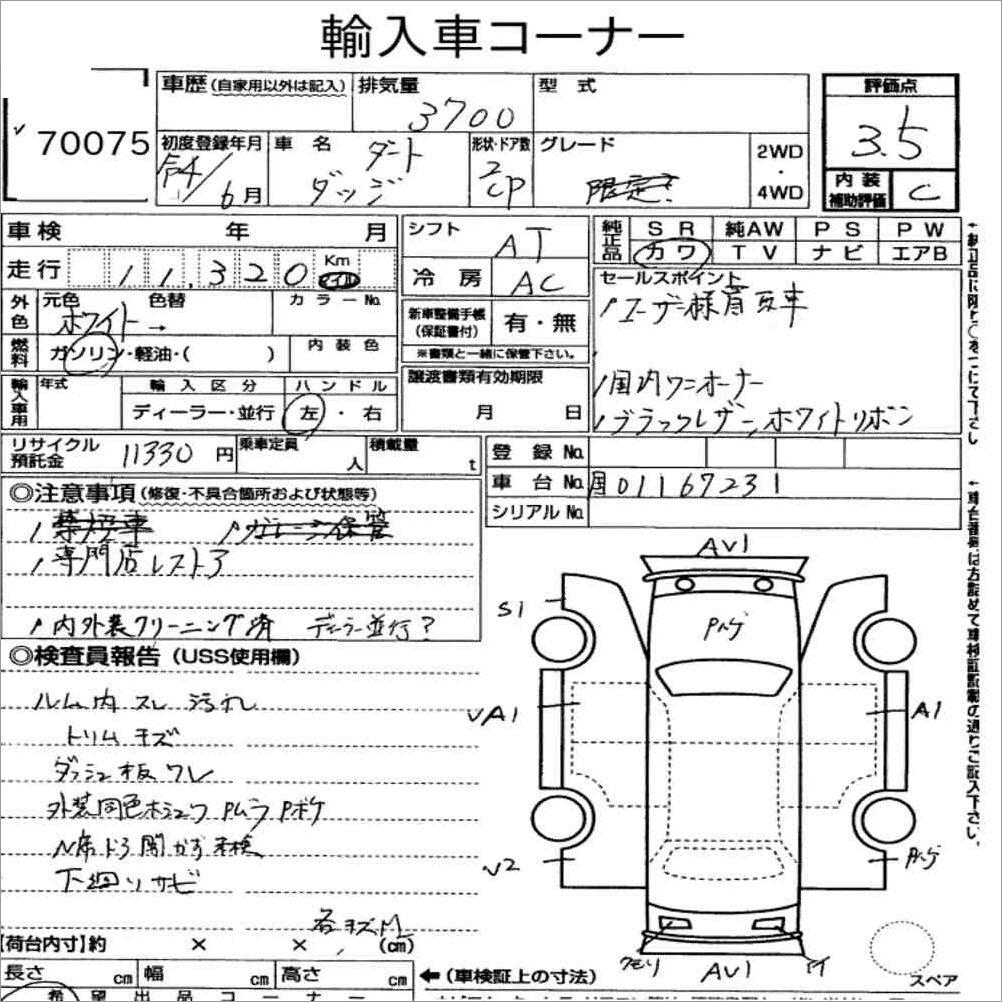 輸入車コーナー
70075
車歴 (自家用以外は記入)
排気量 3700
型式
評価点 3.5
初度登録年月 4/6月
車名 ダッジ ダート
形状・ドア数 2 CP
グレード 限定
2WD・4WD
内装補助評価 C
車検 年 月
シフト AT
純正品 SR 純AW PS PW
カワ TV ナビ エアB
走行 11.320 Km マイル
冷房 AC
セールスポイント
外色 元色 ホワイト → 色替
カラーNo.
新車整備手帳(保証書付) 有・無
※書類と一緒に保管下さい。
ユーザー様買取車
燃料 ガソリン・軽油・( )
内装色
国内ワンオーナー
ブラックレザー ホワイトリボン
輸入車用 年式 輸入区分 ディーラー・並行
ハンドル 左・右
譲渡書類有効期限 月 日
リサイクル預託金 11330円
乗車定員 人
積載量 t
登録No.
車台No. 国 01167231
シリアルNo.
◎注意事項 (修復・不具合箇所および状態等)
専門店レストア
内外装クリーニング済 ディーラー並行?
◎検査員報告 (USS使用欄)
ルーム内 スレ 汚れ
トリム キズ
ダッシュ板 ワレ
外装同色ホシュウ Pムラ Pボケ
N席ドア開かず 車検
下廻リサビ
各キズM
AV1
S1
Pハゲ
VA1
A1
V2
Pハゲ
クモリ
AV1
スペア
【荷台内寸】約 × × (cm)
長さ cm 幅 cm 高さ cm
←(車検証上の寸法)
希望出品コーナー
↑純正品に限り○をつけて下さい
↑車台番号は右詰めで車検証記載の通りご記入下さい。